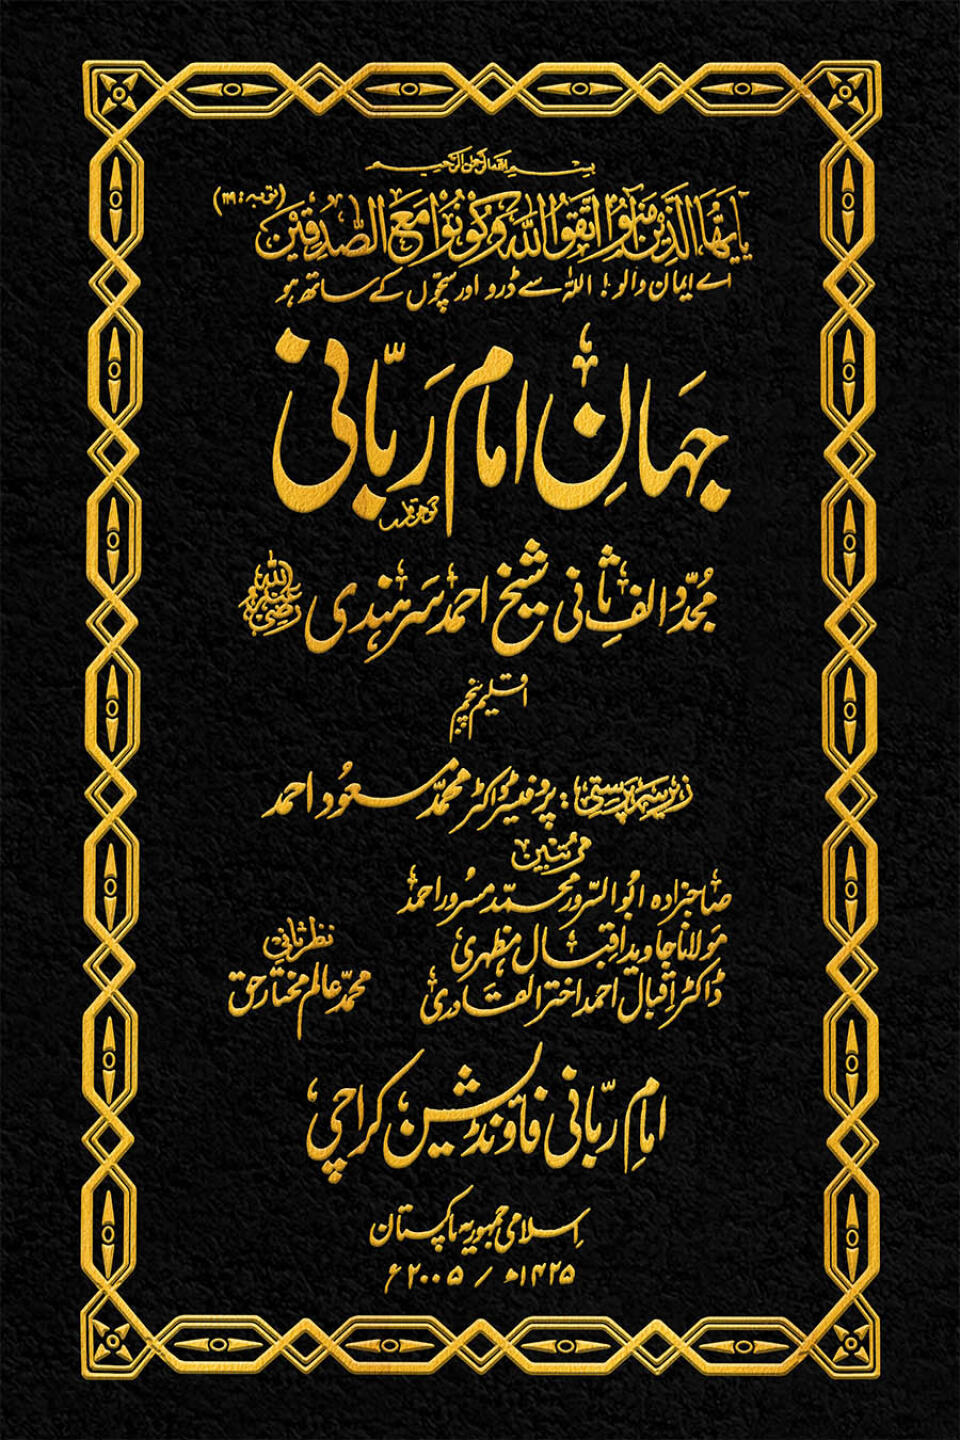 بسم اللہ الرحمن الرحیم
یٰٓاَیُّهَا الَّذِیْنَ اٰمَنُوا اتَّقُوا اللّٰهَ وَ كُوْنُوْا مَعَ الصّٰدِقِیْنَ (توبہ: ۱۱۹)
اے ایمان والو! اللہ سے ڈرو اور سچّوں کے ساتھ ہو
جہانِ امام ربّانی
مُجدّدِ الفِ ثانی شیخ احمد سرہندی رضی اللہ عنہ
اقلیم پنجم
زیرِ سرپرستی: پروفیسر ڈاکٹر محمّد مسعُود احمد
مرتبین
صاحبزادہ ابُوالسّرور محمّد مسرُور احمد
مولانا جاوید اقبال مظہری
ڈاکٹر اقبال احمد اختر القادری
نظر ثانی
محمّد عالم مختارِ حق
امامِ ربّانی فاؤنڈیشن کراچی
اِسلامی جمہوریہ پاکستان
۱۴۲۵ھ / ۲۰۰۵ء